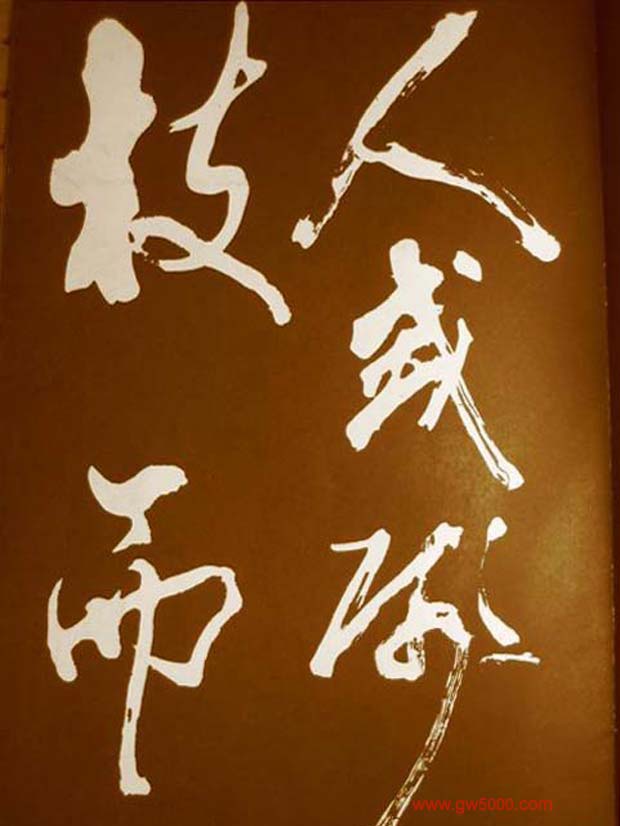 人或
枝而
www.gw5000.com